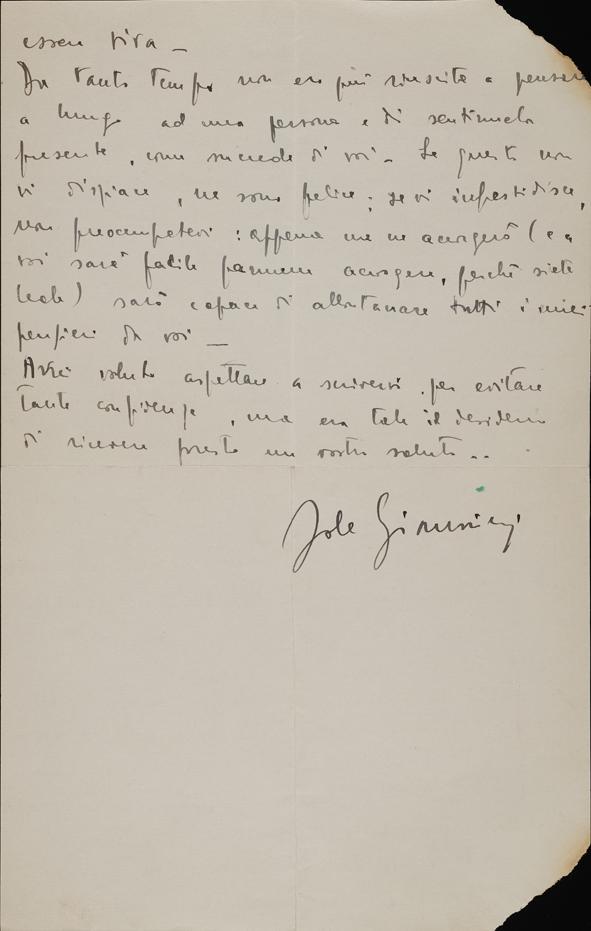 essere viva –
Da tanto tempo non ero più riuscita a pensare
a lungo ad una persona e di sentirmela
presente, come succede di voi – Se questo non
vi dispiace, ne sono felice; se vi infastidisce,
non preoccupatevi: appena me ne accorgerò (e a
voi sarà facile farmene accorgere, perchè siete
leale) sarò capace di allontanare tutti i miei
pensieri da voi –
Avrei voluto aspettare a scrivervi per evitare
tante confidenze, ma era tale il desiderio
di ricevere presto un vostro saluto..
Jole